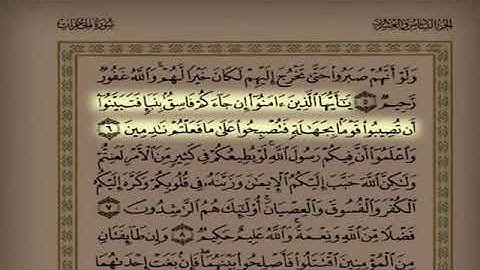 سورة الحجرات الجزء السادس والعشرون
وَلَوْ أَنَّهُمْ صَبَرُوا۟ حَتَّىٰ تَخْرُجَ إِلَيْهِمْ لَكَانَ خَيْرًا لَّهُمْ ۚ وَٱللَّهُ غَفُورٌ
رَّحِيمٌ ٥ يَـٰٓأَيُّهَا ٱلَّذِينَ ءَامَنُوٓا۟ إِن جَآءَكُمْ فَاسِقٌۢ بِنَبَإٍ فَتَبَيَّنُوٓا۟
أَن تُصِيبُوا۟ قَوْمًۢا بِجَهَـٰلَةٍ فَتُصْبِحُوا۟ عَلَىٰ مَا فَعَلْتُمْ نَـٰدِمِينَ ٦
وَٱعْلَمُوٓا۟ أَنَّ فِيكُمْ رَسُولَ ٱللَّهِ ۚ لَوْ يُطِيعُكُمْ فِى كَثِيرٍ مِّنَ ٱلْأَمْرِ لَعَنِتُّمْ
وَلَـٰكِنَّ ٱللَّهَ حَبَّبَ إِلَيْكُمُ ٱلْإِيمَـٰنَ وَزَيَّنَهُۥ فِى قُلُوبِكُمْ وَكَرَّهَ إِلَيْكُمُ
ٱلْكُفْرَ وَٱلْفُسُوقَ وَٱلْعِصْيَانَ ۚ أُو۟لَـٰٓئِكَ هُمُ ٱلرَّٰشِدُونَ ٧
فَضْلًا مِّنَ ٱللَّهِ وَنِعْمَةً ۚ وَٱللَّهُ عَلِيمٌ حَكِيمٌ ٨ وَإِن طَآئِفَتَانِ
مِنَ ٱلْمُؤْمِنِينَ ٱقْتَتَلُوا۟ فَأَصْلِحُوا۟ بَيْنَهُمَا ۖ فَإِنۢ بَغَتْ إِحْدَىٰهُمَا